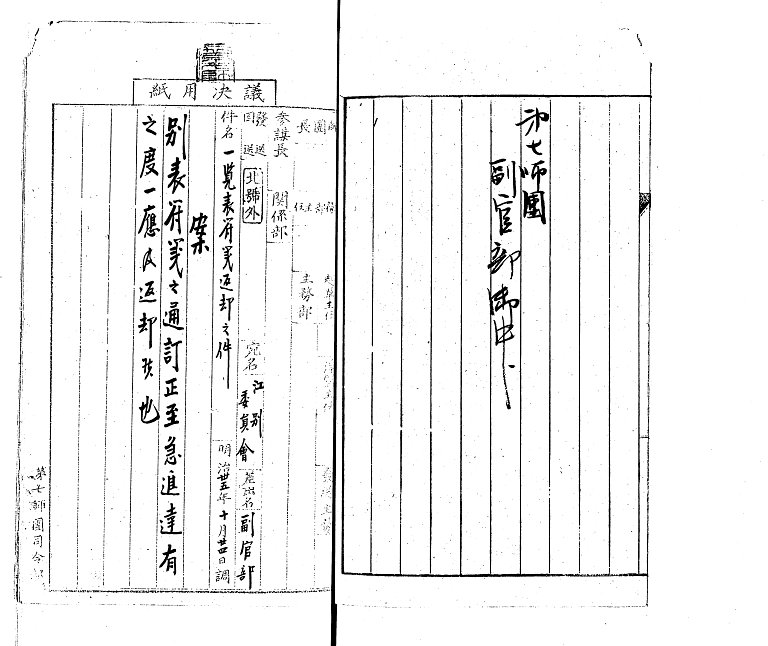 第七師團
副官部御中
議決用紙
團長
主務部
參謀長
關係部
發送
回送
北號外
宛名
江別
委員會
差出名
副官部
件名
一覽表符箋返却之件
明治卅五年十月廿四日調
案
別表符箋之通訂正至急進達有
之度一應及返却候也
第七師團司令部